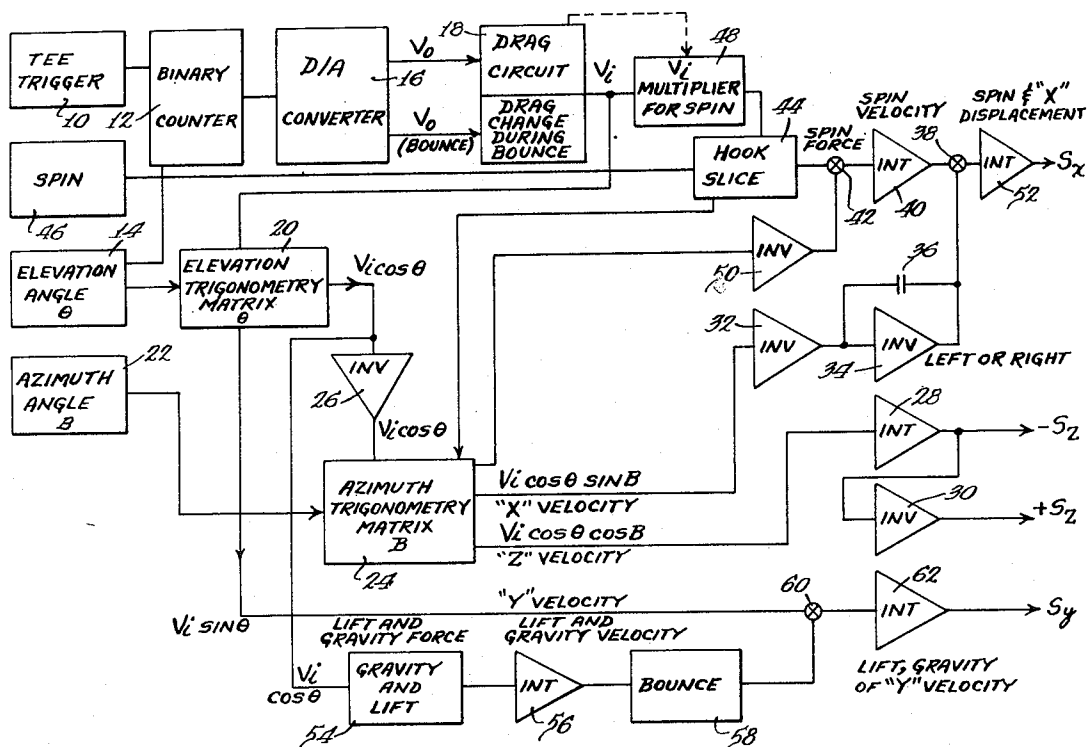 TEE
TRIGGER
10
BINARY
COUNTER
12
D/A
CONVERTER
16
V₀
V₀
(BOUNCE)
18
DRAG
CIRCUIT
DRAG
CHANGE
DURING
BOUNCE
Vi
48
Vi
MULTIPLIER
FOR SPIN
44
HOOK
SLICE
SPIN
FORCE
42
SPIN
VELOCITY
INT
40
38
SPIN & "X"
DISPLACEMENT
INT
52
Sx
SPIN
46
14
ELEVATION
ANGLE
θ
20
ELEVATION
TRIGONOMETRY
MATRIX
θ
Vi cosθ
INV
50
36
32
INV
INV
34
LEFT OR RIGHT
22
AZIMUTH
ANGLE
B
INV
26
Vi cosθ
28
INT
-Sz
AZIMUTH
TRIGONOMETRY
MATRIX
B
24
Vi cosθ sinB
"X" VELOCITY
Vi cosθ cosB
"Z" VELOCITY
30
INV
+Sz
Vi SINθ
"Y" VELOCITY
60
62
INT
Sy
LIFT AND
GRAVITY FORCE
LIFT AND
GRAVITY VELOCITY
Vi
cosθ
GRAVITY
AND
LIFT
54
INT
56
BOUNCE
58
LIFT, GRAVITY
OF "Y" VELOCITY